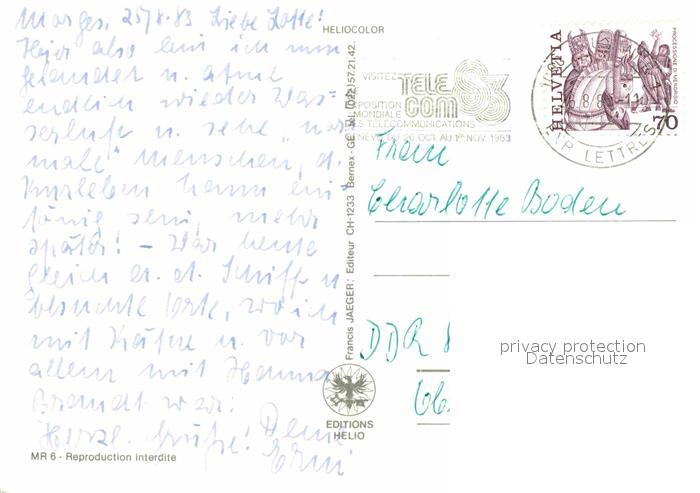 Morges, 25/8.83 Liebe Lotte!
Hier also bin ich nun
gelandet u. atme
endlich wieder Was-
serluft u. sehe "nor
male" Menschen, d.
Kurleben kann ein-
tönig sein, mehr
später! - War heute
gleich a. d. Schiff u
besuchte Orte, wo ich
mit Käthe u. vor
allem mit Hanna
Brandt war.
Herzl. Grüße! Deine
Erni
MR 6 - Reproduction interdite
HELIOCOLOR
Francis JAEGER: Editeur CH-1233 Bernex-GE Tél. (022) 57.21.42.
EDITIONS
HELIO
VISITEZ
TELE
COM 83
EXPOSITION
MONDIALE
DES TÉLÉCOMMUNICATIONS
GENÈVE DU 26 OCT. AU 1er NOV. 1983
EXP LETTRES
HELVETIA
70
PROCESSIONE DI MENDRISIO
Frau
Charlotte Boden
DDR
privacy protection
Datenschutz